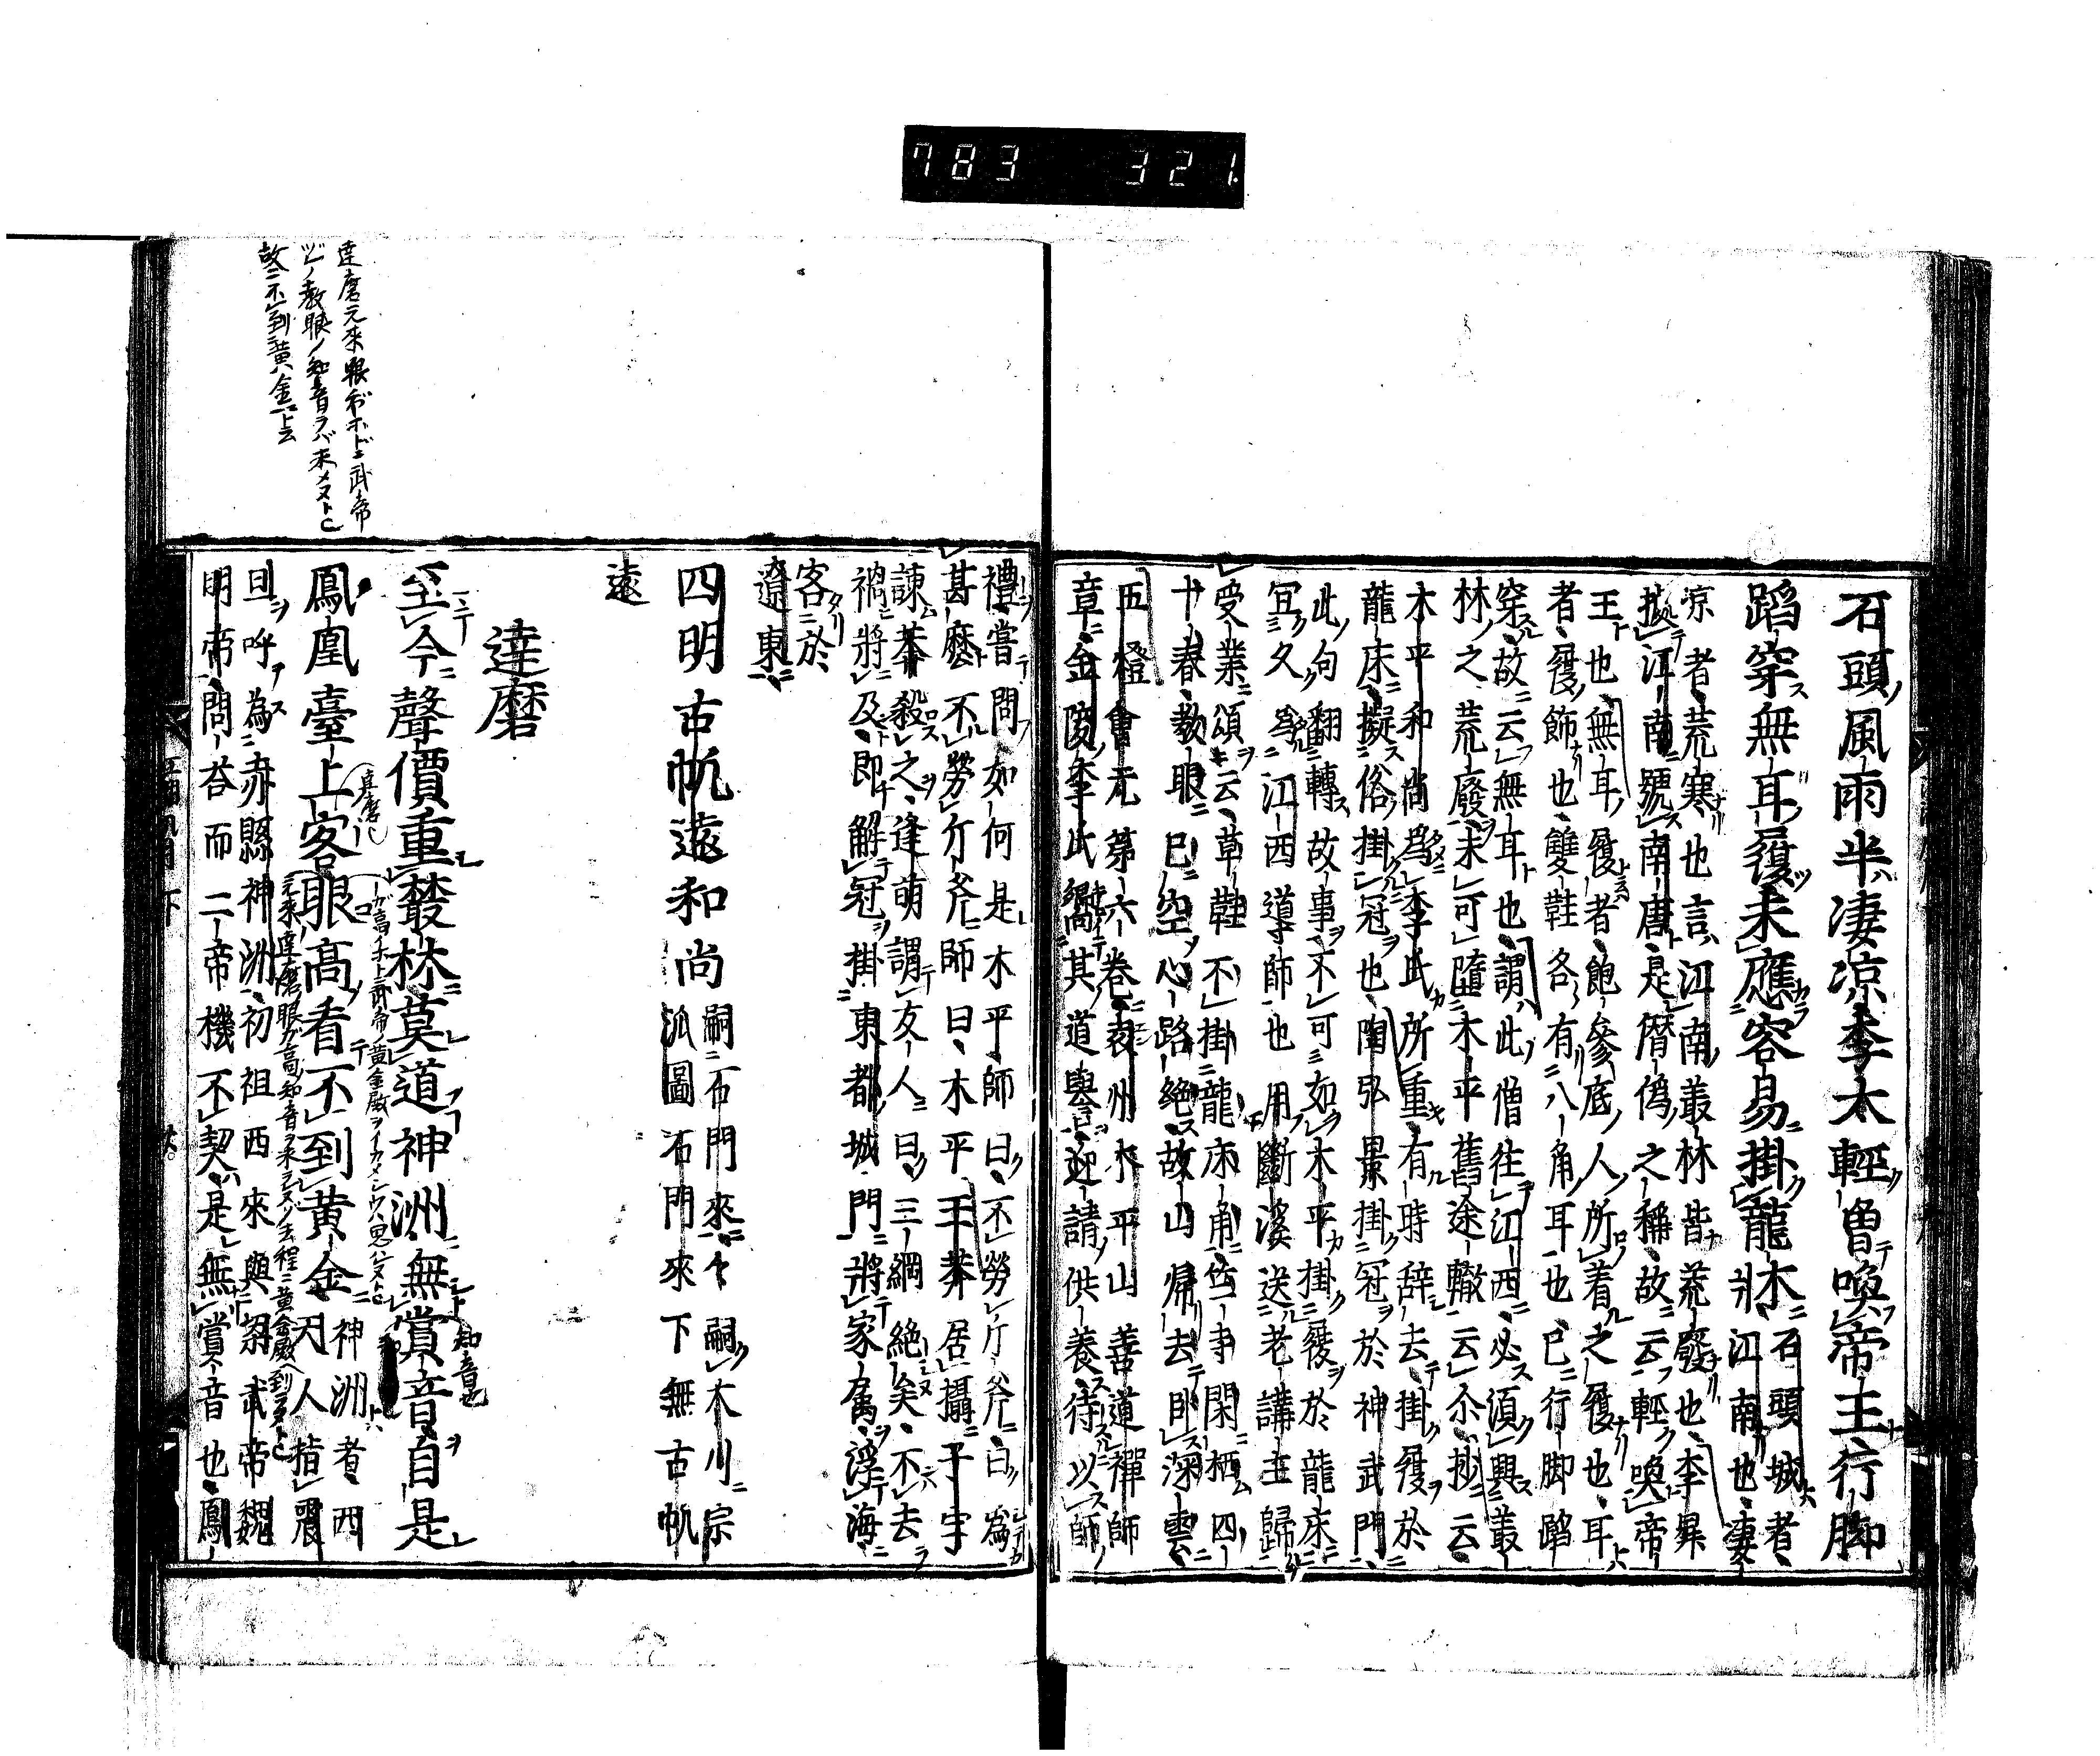 783 321.
石頭風雨半凄凉李太輕曽喚帝王行脚
蹈穿無耳履未應容易掛龍床
石頭城者
江南也凄
凉者荒寒也言江南叢林皆荒廢也李昪
據江南號南唐是僣偽之稱故云輕喚帝
王也無耳履者飽參底人所着之履也耳
者履飾也雙鞋各有八角耳也已行脚蹈
穿故云無耳也謂此僧往江西必須興叢
林之荒廢未可墮木平舊途轍云尒抄云
木平和尚爲李氏所重有時辞去掛履於
龍床擬俗掛冠也陶弘景掛冠於神武門
此句翻轉故事不可如木平掛履於龍床
冝久爲江西導師也用斷溪送老講主歸
受業頌云草鞋不掛龍床角佐事閑栖四
十春教眼已空心路絶故山帰去卧深雲
五燈會元第六卷袁州木平山善道禪師
章金陵李氏嚮其道譽迎請供養待以師
禮嘗問如何是木平師曰不勞斤斧曰爲
甚麽不勞斤斧師曰木平王莽居攝子宇
諫莽殺之逢萌謂友人曰三綱絶矣不去
禍將及即解冠掛東都城門將家属浮海
客於
遼東
四明古帆遠和尚
嗣石門來々嗣木川宗
派圖石門來下無古帆
遠
達磨
至今聲價重叢林莫道神洲無賞音自是
鳳凰臺上客眼高看不到黄金
神洲者西
天人指震
旦呼為赤縣神洲初祖西來與梁武帝魏
明帝問荅而二帝機不契是無賞音也鳳
達磨元來眼ガホドニ武帝
ノ教眼ノ知音ラバ求メヌト
故ニ不到黄金ト云
達磨
知音也